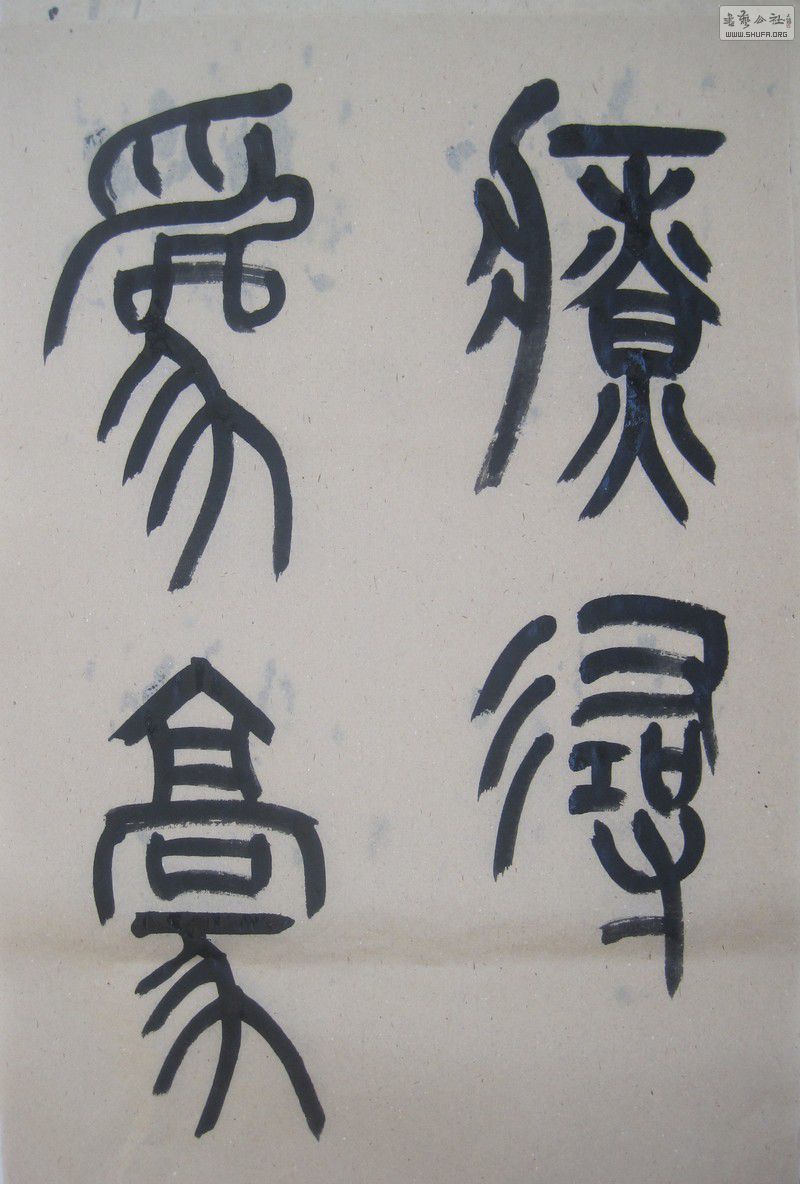 療尋
爲豪
書藝公社
WWW.SHUFA.ORG